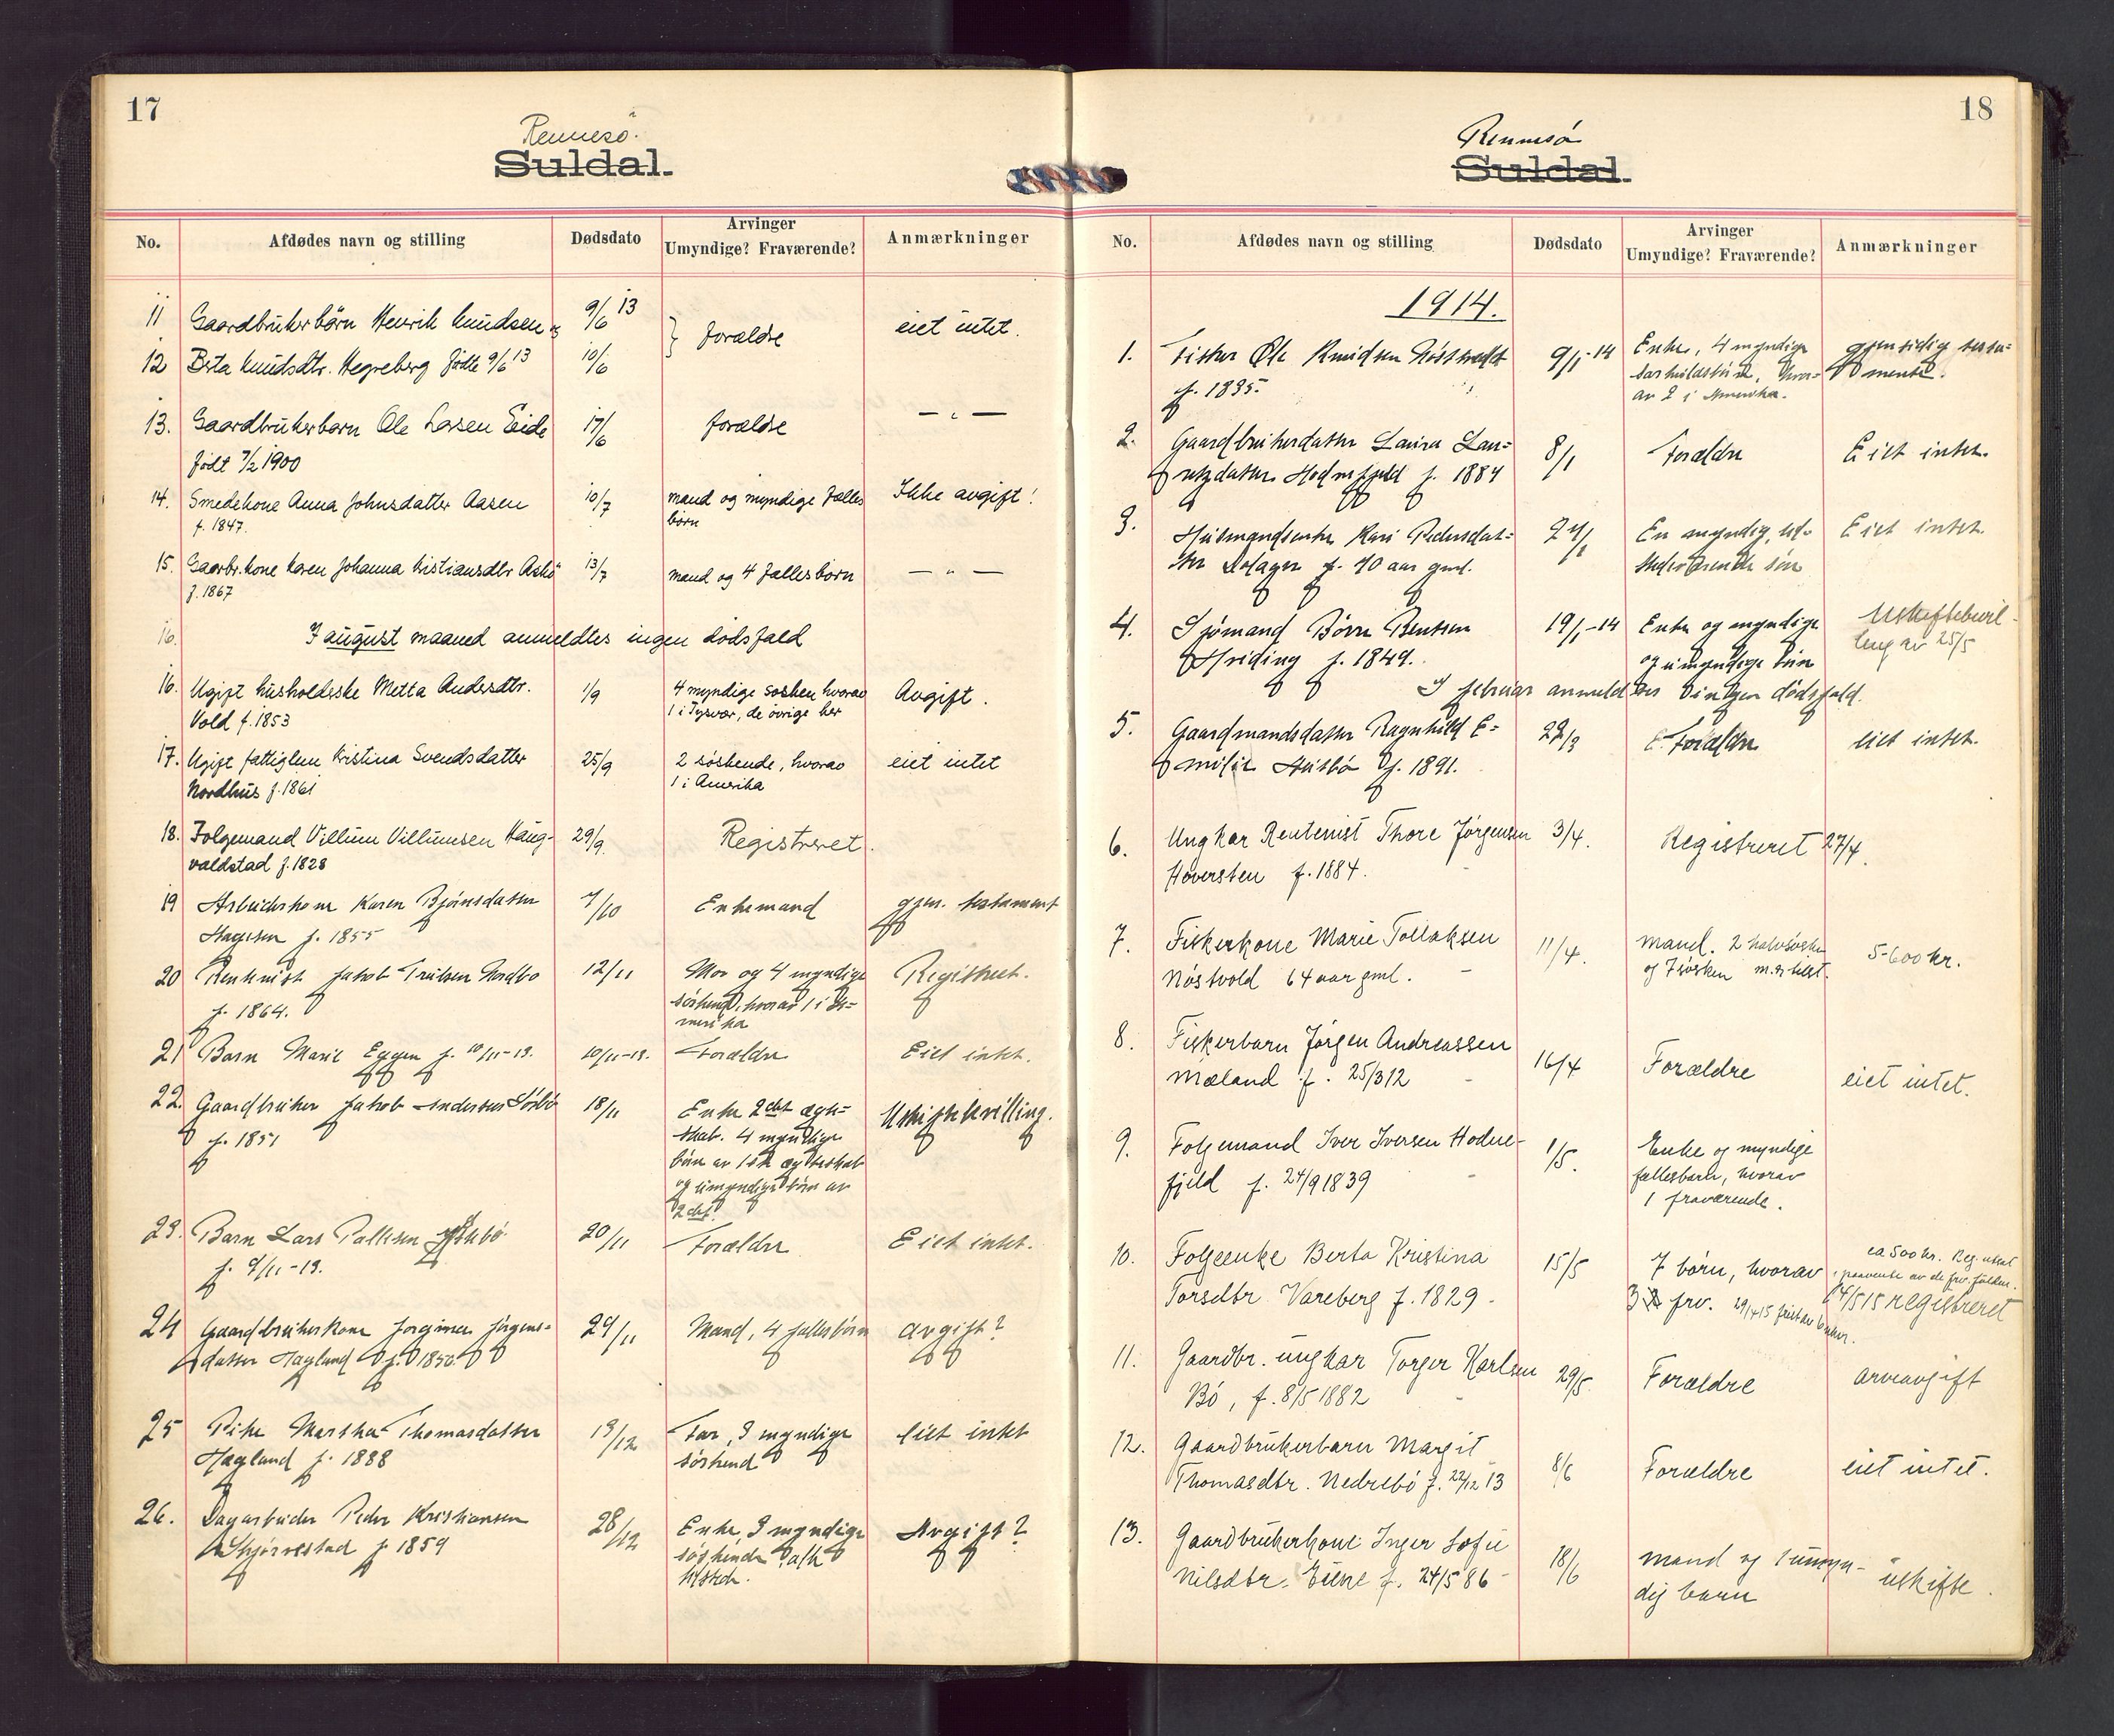 17
Rennesö.
Suldal.
No.
Afdødes navn og stilling
Dødsdato
Arvinger
Umyndige? Fraværende?
Anmærkninger
11 Gaardbrukerbörn Henrik Knudsen og 9/6 13 } forældre eiet intet.
12 Berta Knudsdtr. Hegreberg födte 9/6 13 10/6
13. Gaardbrukerbarn Ole Larsen Eide 17/6 forældre — " —
födt 7/2 1900
14. Smedekone Anna Johnsdatter Aasen 10/7 mand og myndige fælles Ikke avgift!
f. 1847. börn
15. Gaarbr.kone Karen Johanna Kristiansdtr Askö 13/7 mand og 4 fællesbörn — " —
f. 1867
16. I august maaned anmeldtes ingen dödsfald
16. Ugift husholderske Metta Andersdtr. 1/9 4 myndige sösken hvorav Avgift.
Vold f. 1853 1 i Tysvær, de övrige her
17. Ugift fattiglem Kristina Svendsdatter 25/9 2 söskende, hvorav eiet intet
Nordhus f. 1861 1 i Amerika
18. Folgemand Villum Villumsen Haug- 29/9. Registreret.
valdstad f. 1828
19 Arbeiderkone Karen Bjørnsdatter 7/10 Enkemand gjen. testament
f. 1855
20 Rentenist Jakob Nordbø 12/11 Mor og 4 myndige Registreret.
f. 1864. søskend, hvorav 1 i A=
merika
21 Barn Marie Eggen f. 10/11-13. 10/11-13. Forældre Eiet intet.
22. Gaardbruker Jakob Andersen Sörbö 18/11 Enke 2det egte= Uskiftebevilling.
f. 1851 skab. 4 myndige
børn av 1ste egteskab
og umyndige børn av
2det.
23. Barn Lars Pallesen 20/11 Forældre Eiet intet.
f. 9/11-13.
24 Gaardbrukerkone Jorgine Jørgens= 24/11 Mand, 4 fællesbørn avgift?
datter Hagland f. 1850
25 Pike Martha Thomasdatter 13/12 Far, 3 myndige Eiet intet
Hagland f. 1888 søskend
26. Dagarbeider Peder Kristiansen 28/12 Enke, 3 myndige Avgift?
f. 1859 søskende
18
Rennesø
Suldal.
No.
Afdødes navn og stilling
Dødsdato
Arvinger
Umyndige? Fraværende?
Anmærkninger
1914.
1. Fisker Ole Knudsen 9/1-14 Enke, 4 myndige gjensidig testa=
f. 1835. særkuldsbørn, hvor= mente.
av 2 i Amerika.
2. Gaardbrukerdatter Laura Lau= 8/1 Forældre Eiet intet.
ritzdatter Hodnefjeld f. 1884
3. Husmandsenke Kari Pedersdat= 24/1 En myndig, til= Eiet intet.
ter 70 aar gml. stedeværende søn
4. Sjömand Børre Bentsen 19/1-14 Enke og myndige Uskiftebevil-
f. 1849. og umyndige børn ling av 25/5
I februar anmeldtes intgen dødsfald.
5. Gaardmandsdatter Ragnhild E= 22/3 Forældre eiet intet.
milie f. 1891.
6. Ungkar Rentenist Thore Jørgensen 3/4. Registreret 27/4.
Hoversten f. 1884.
7. Fiskerkone Marie Tollaksen 11/4. mand. 2 halvsøsken 5-600 kr.
Nöstvold 64 aar gml. og 7 søsken
8. Fiskerbarn Jörgen Andreassen 16/4 Forældre eiet intet.
Mæland f. 25/3 12
9. Folgemand Iver Iversen Hodne- 1/5. Enke og myndige
fjeld f. 24/9 1839 fællesbarn, hvorav
1 fraværende.
10. Folgeenke Berta Kristina 15/5 7 börn, hvorav ca 500 kr.
Torsdtr Vareberg f. 1829. 3 frv. 4/5 15 registreret
11. Gaardbr. ungkar Torger Karlsen 29/5 Forældre arveavgift
Bö, f. 8/5 1882
12. Gaardbrukerbarn Margit 8/6 Forældre eiet intet.
Thomasdtr. Nedrebö f. 22/12 13
13. Gaardbrukerkone Inger Sofie 18/6 mand og 1 umyn- uskifte.
Nilsdtr. f. 24/5 86 dig barn